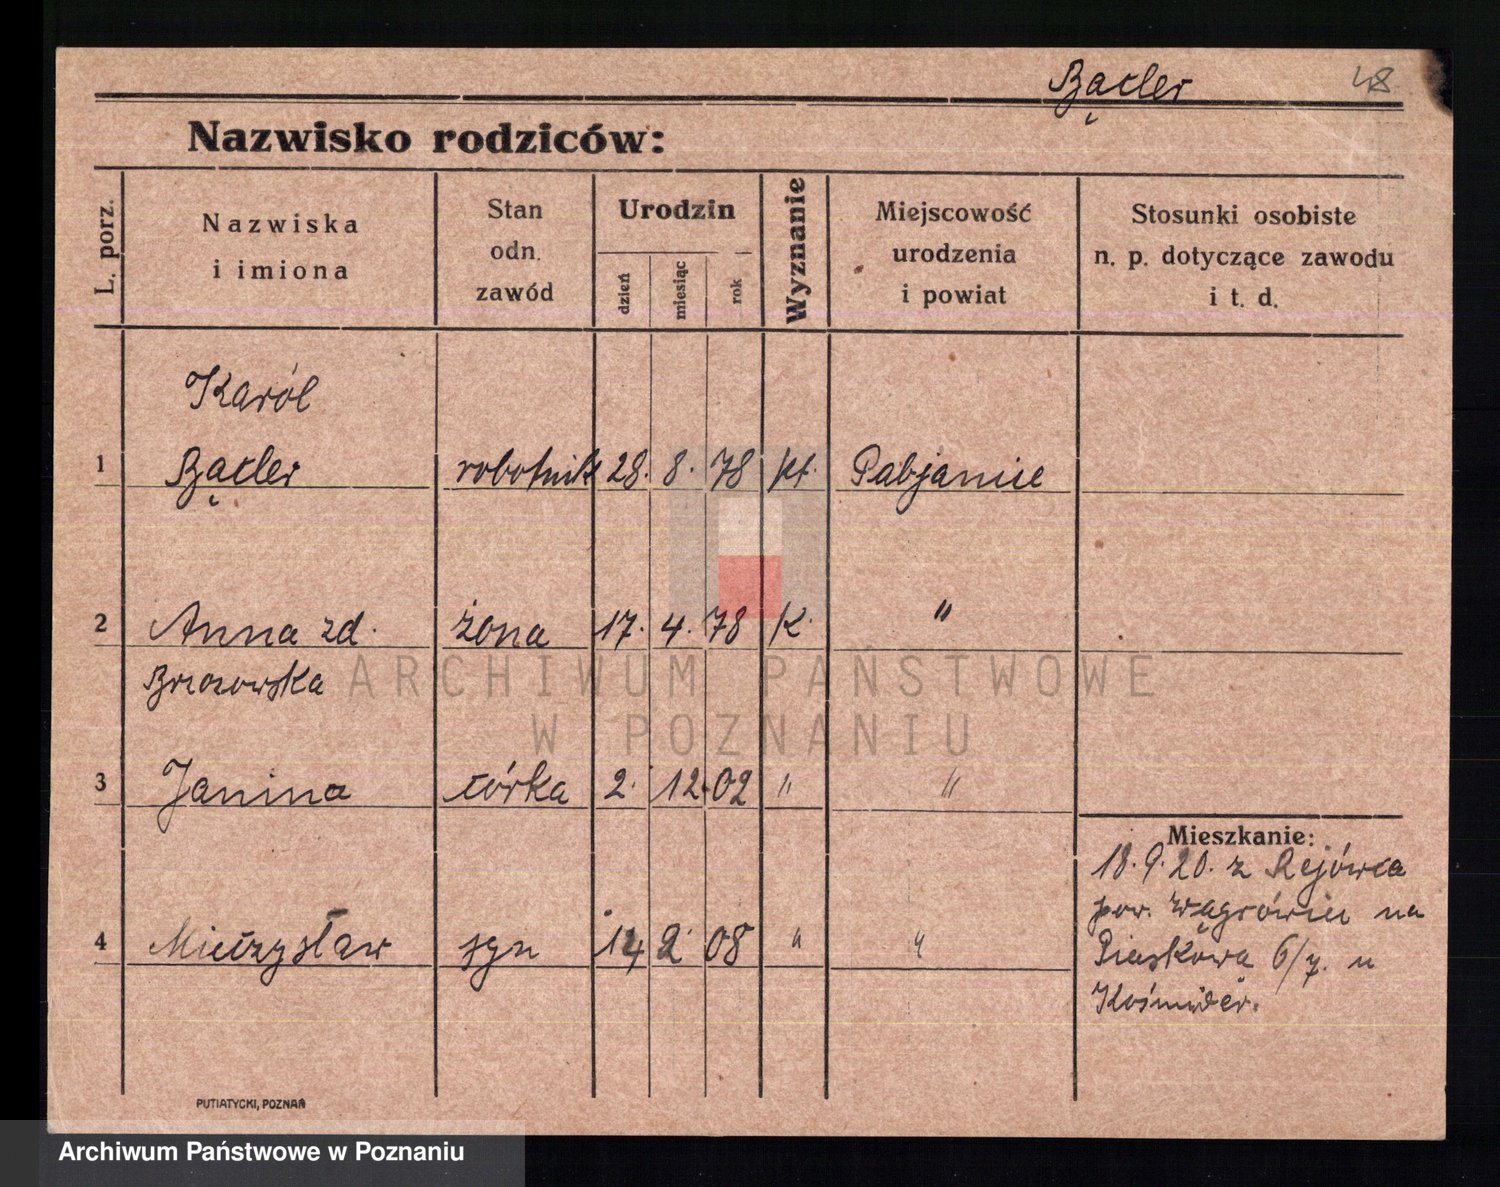 Bącler 48
Nazwisko rodziców:
L. porz.
Nazwiska
i imiona
Stan
odn.
zawód
Urodzin
dzień
miesiąc
rok
Wyznanie
Miejscowość
urodzenia
i powiat
Stosunki osobiste
n. p. dotyczące zawodu
i t. d.
Karól
1 Bącler robotnik 28. 8. 78 kt. Pabjanice
2 Anna zd. żona 17. 4. 78 K. "
Brzozowska
3 Janina córka 2. 12. 02 " "
Mieszkanie:
18.9.20. z Rejówca
pow. Wągrówiec na
4 Mieczysław syn 14 2. 08 " "
Piaskową 6/7. u
Kośmider.
PUTIATYCKI, POZNAŃ
ARCHIWUM PAŃSTWOWE
W POZNANIU
Archiwum Państwowe w Poznaniu